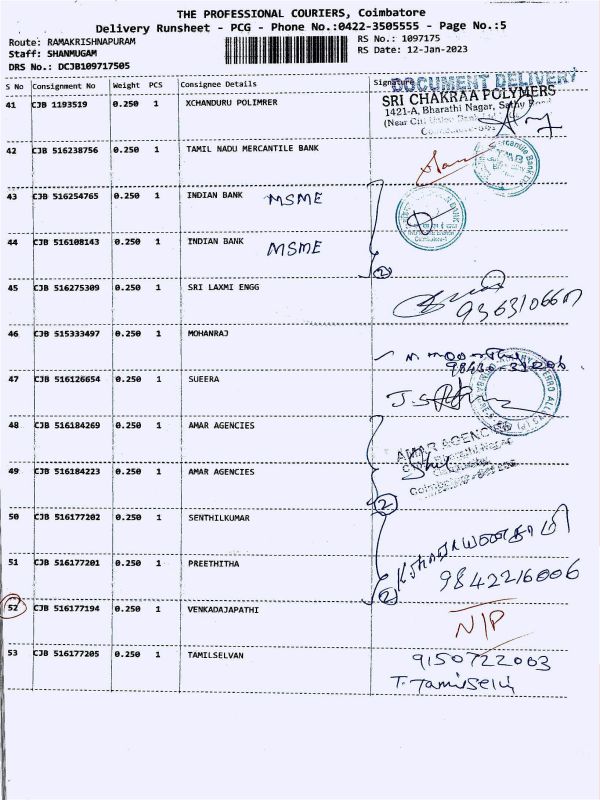 THE PROFESSIONAL COURIERS, Coimbatore
Delivery Runsheet - PCG - Phone No.:0422-3505555 - Page No.:5
Route: RAMAKRISHNAPURAM
RS No.: 1097175
Staff: SHANMUGAM
RS Date: 12-Jan-2023
DRS No.: DCJB109717505
S No Consignment No Weight PCS Consignee Details Signature
DOCUMENT DELIVERY
41 CJB 1193519 0.250 1 XCHANDURU POLIMRER
SRI CHAKRAA POLYMERS
1421-A, Bharathi Nagar, Sathy Road
42 CJB 516238756 0.250 1 TAMIL NADU MERCANTILE BANK
43 CJB 516254765 0.250 1 INDIAN BANK MSME
44 CJB 516108143 0.250 1 INDIAN BANK MSME
2
45 CJB 516275309 0.250 1 SRI LAXMI ENGG
46 CJB 515333497 0.250 1 MOHANRAJ
47 CJB 516126654 0.250 1 SUEERA
48 CJB 516184269 0.250 1 AMAR AGENCIES
AMAR AGENC
49 CJB 516184223 0.250 1 AMAR AGENCIES
2
50 CJB 516177202 0.250 1 SENTHILKUMAR
51 CJB 516177201 0.250 1 PREETHITHA
9842216006
2
52 CJB 516177194 0.250 1 VENKADAJAPATHI
N/P
53 CJB 516177205 0.250 1 TAMILSELVAN
9150722003
T. Tamilselvi